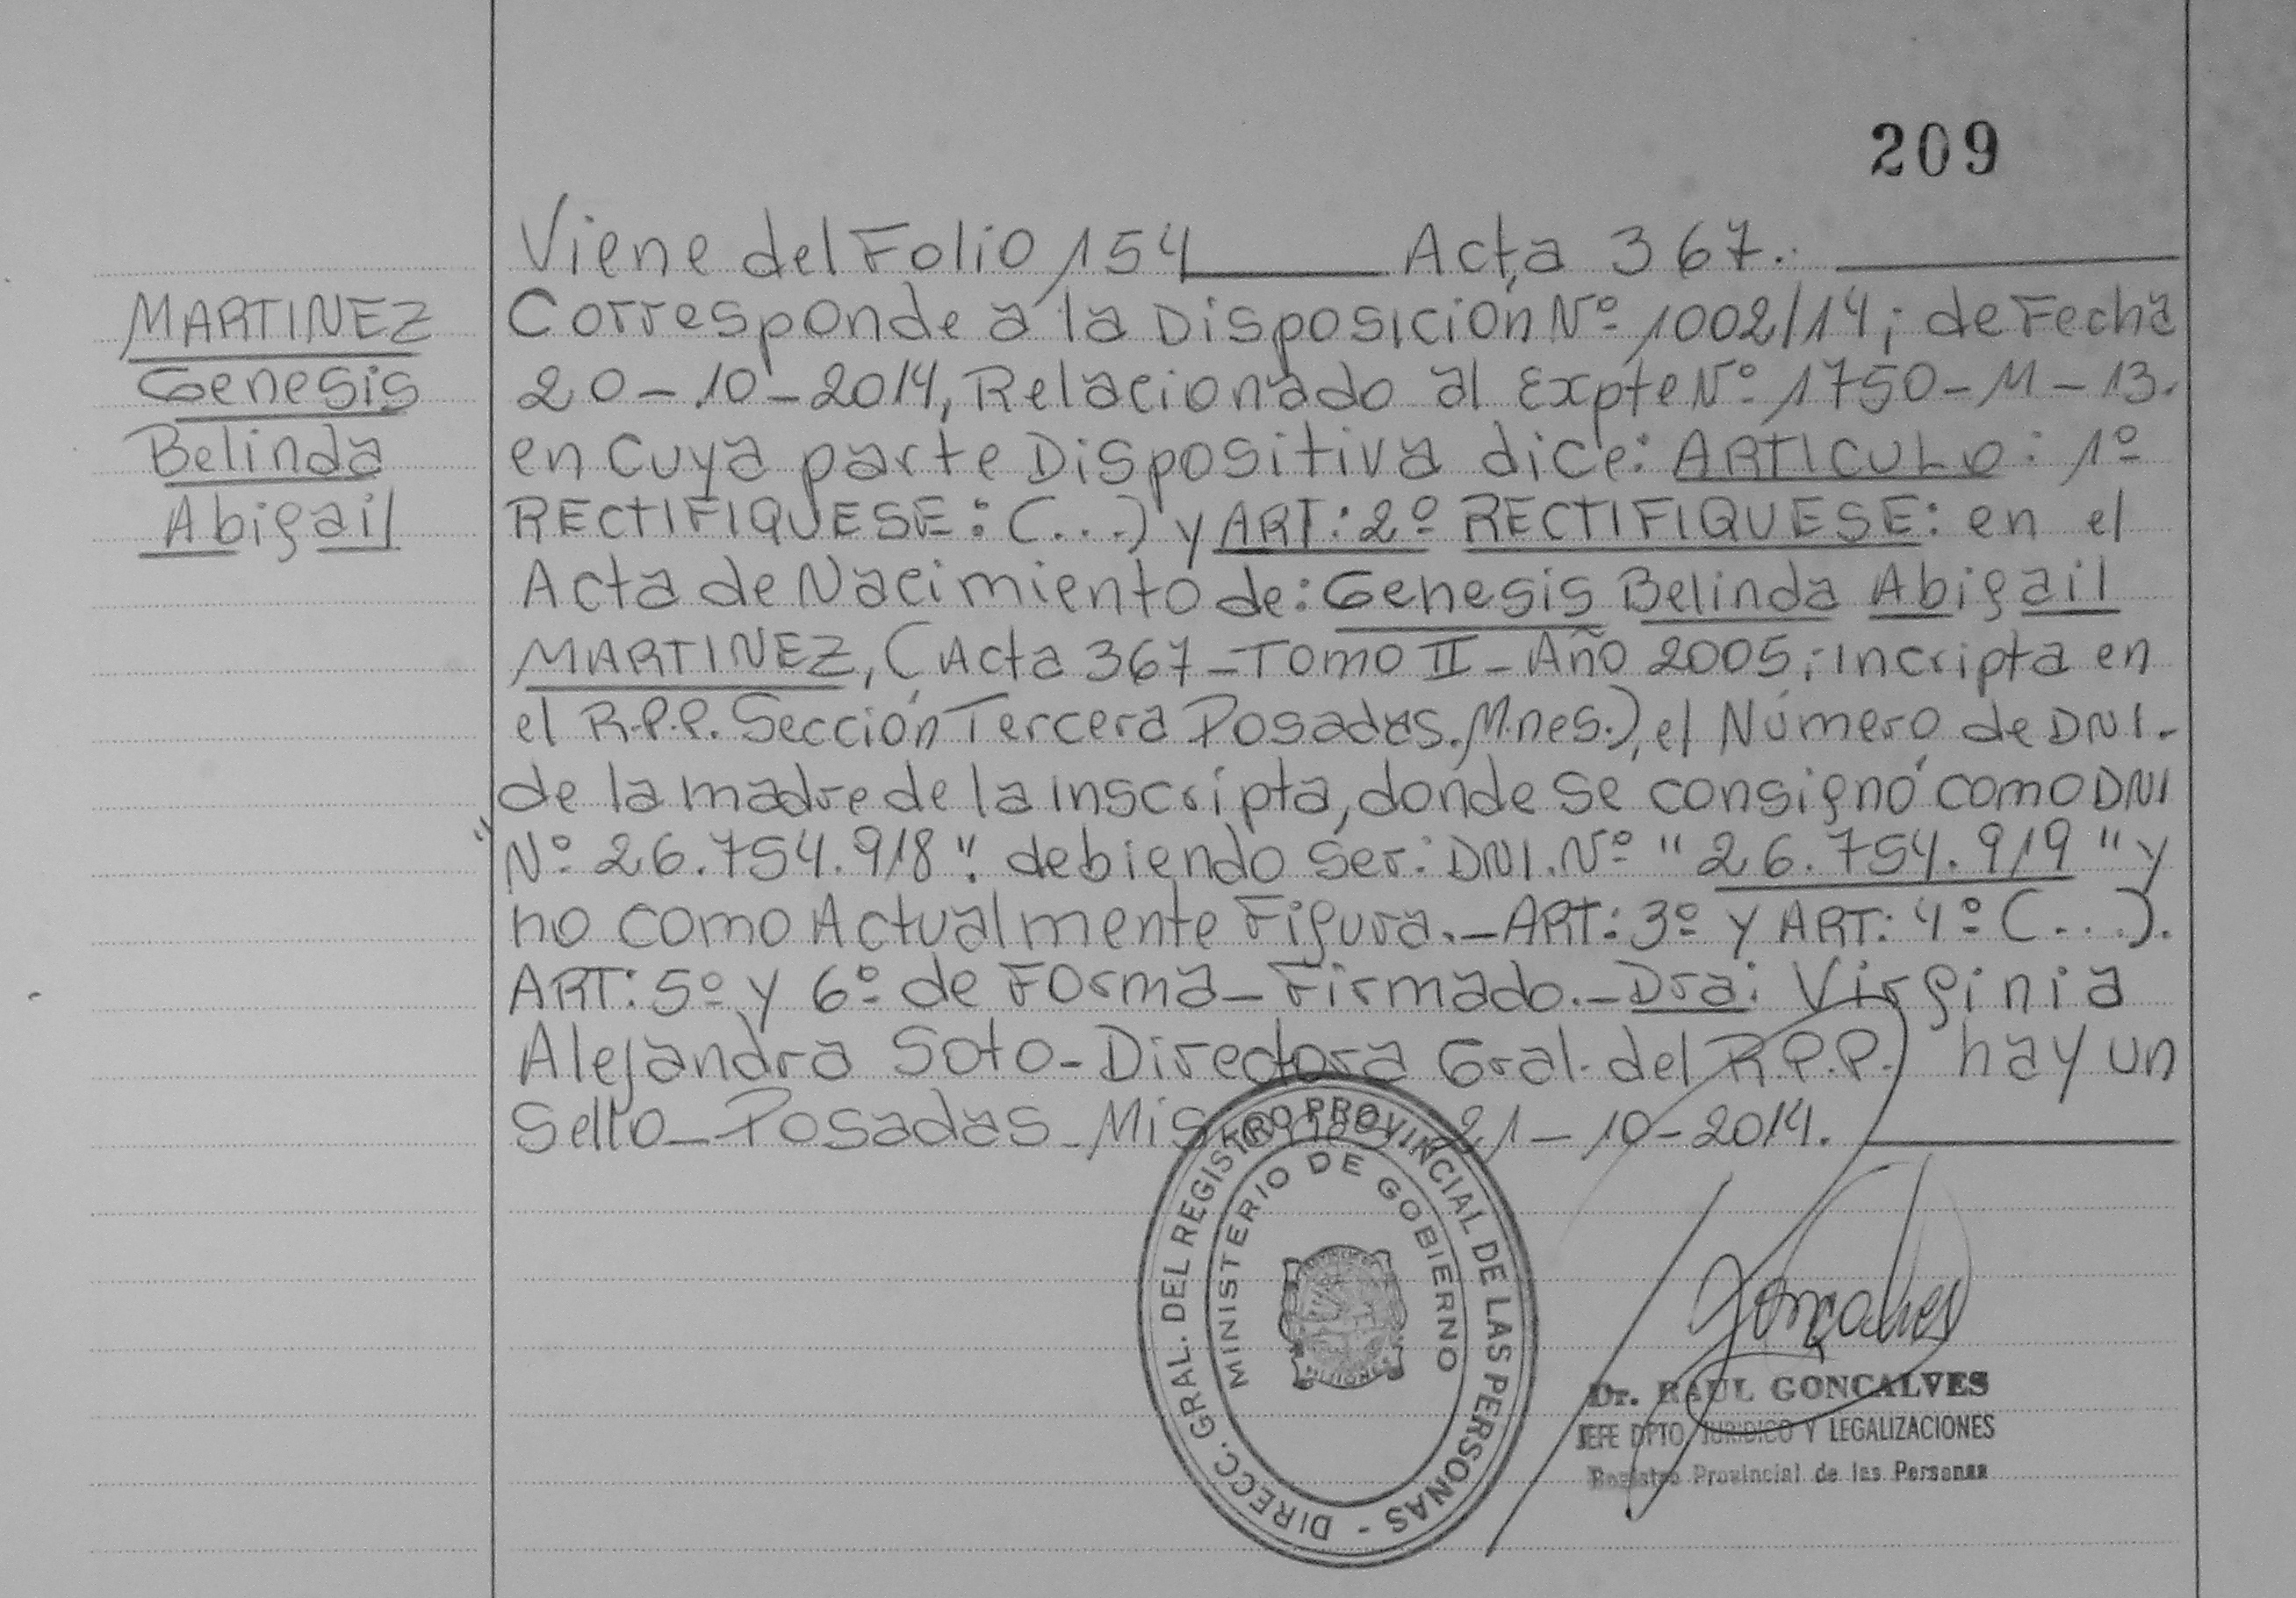 209
Viene del Folio 154 Acta 367.
MARTINEZ
Genesis
Belinda
Abigail
Corresponde a la Disposición Nº 1002/14; de Fecha
20-10-2014, Relacionado al Expte Nº 1750-M-13.
en cuya parte Dispositiva dice: ARTICULO: 1º
RECTIFIQUESE: (...) y ART: 2º RECTIFIQUESE: en el
Acta de Nacimiento de: Genesis Belinda Abigail
MARTINEZ, (Acta 367-Tomo II-Año 2005; Incripta en
el R.P.P. Sección Tercera Posadas. M.nes.), el Número de DNI.
de la madre de la inscripta, donde se consignó como DNI
"Nº 26.754.918". debiendo ser: DNI. Nº "26.754.919" y
no como Actualmente Figura.-ART: 3º y ART: 4º (...).
ART: 5º y 6º de Forma-Firmado.-Dra: Virginia
Alejandra Soto-Directora Gral. del R.P.P.) hay un
Sello-Posadas-Misiones, 21-10-2014.
DIRECC. GRAL. DEL REGISTRO PROVINCIAL DE LAS PERSONAS -
MINISTERIO DE GOBIERNO
MISIONES
Gonçalves
Dr. RAUL GONCALVES
JEFE DPTO JURIDICO Y LEGALIZACIONES
Registro Provincial de las Personas